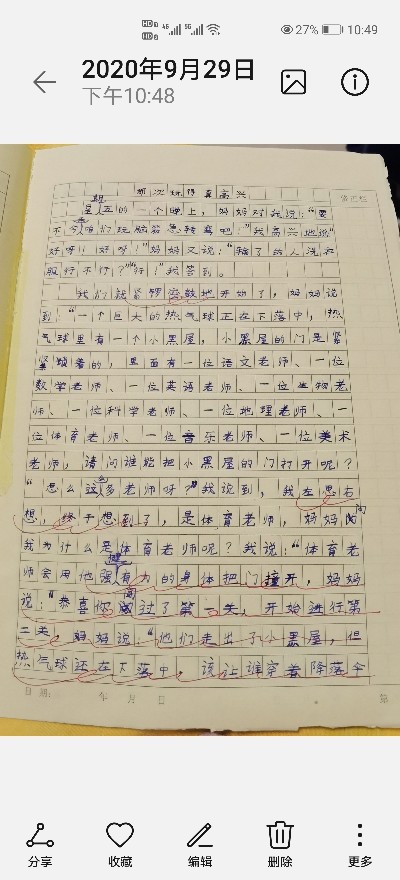 27% 10:49
2020年9月29日
下午10:48
那次玩得真高兴
星期五的一个晚上，妈妈对我说："要
不今晚咱们玩脑筋急转弯吧！"我高兴地说"
好呀！好呀！"妈妈又说："输了的人洗衣
服行不行？""行！"我答到。
我们就紧锣密鼓地开始了，妈妈说
到："一个巨大的热气球正在下落中，热
气球里有一个小黑屋，小黑屋的门是紧
紧锁着的，里面有一位语文老师、一位
数学老师、一位英语老师、一位生物老
师、一位科学老师、一位地理老师、一
位体育老师、一位音乐老师、一位美术
老师，请问谁能把小黑屋的门打开呢？
"怎么这么多老师呀？"我说到，我左思右
想，终于想到了，是体育老师，妈妈问
我为什么是体育老师呢？我说："体育老
师会用他强健有力的身体把门撞开，妈妈
说："恭喜你闯过了第一关，开始进行第
二关。妈妈说："他们走出了小黑屋，但
热气球还在下落中，该让谁穿着降落伞
日期： 年 月 日 第
分享 收藏 编辑 删除 更多